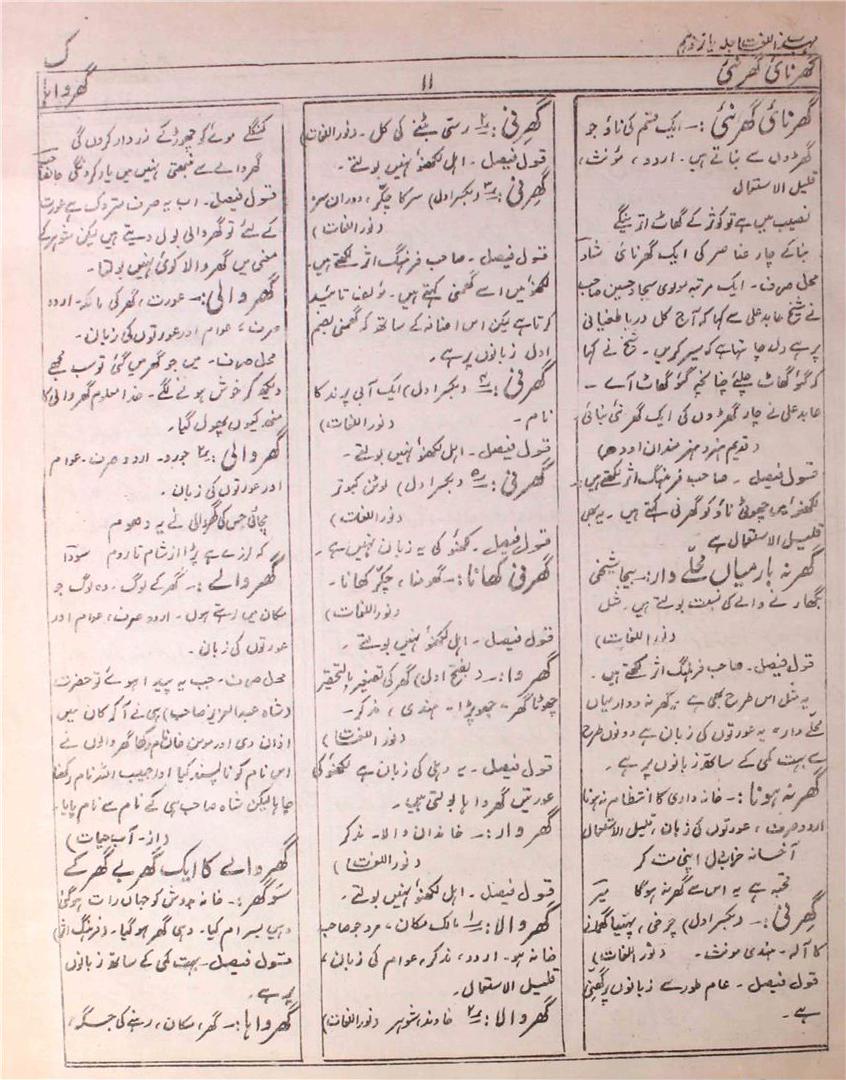 مہذب اللغات جلد یازدہم
گھرنائی گھرنئی
۱۱
گھرواہا
ک
گھرنائی گھرنئی :۔ ایک قسم کی ناؤ جو
گھڑوں سے بناتے ہیں۔ اردو، مؤنث،
قلیل الاستعمال
نصیب میں ہے تو کوثر کے گھاٹ اتریں گے
بنا کے چار عناصر کی ایک گھرنائی شاد
محل صرف۔ ایک مرتبہ مولوی سجاد حسین صاحب
نے شیخ عابد علی سے کہا کہ آج کل دریا طغیانی
پر ہے دل چاہتا ہے کہ سیر کریں۔ شیخ نے کہا
کہ گؤ گھاٹ چلئے چنانچہ گؤ گھاٹ آے۔
عابد علی نے چار گھڑوں کی ایک گھرنئی بنائی
(قدیم ہنر و ہنرمندان اودھ)
قول فیصل۔ صاحب فرہنگ اثر لکھتے ہیں۔
لکھنؤ میں چھوٹی ناؤ کو گھرنی کہتے ہیں۔ یہ بھی
قلیل الاستعمال ہے
گھر نہ بار میاں محلے دار :۔ بیجا شیخی
بگھارنے والے کی نسبت بولتے ہیں۔ مثل
(نور اللغات)
قول فیصل۔ صاحب فرہنگ اثر لکھتے ہیں۔
یہ مثل اس طرح بھی ہے، گھر نہ دوار میاں
محلے دار۔ یہ عورتوں کی زبان ہے دونوں طرح
سے بہت کمی کے ساتھ زبانوں پر ہے۔
گھر نہ ہونا :۔ خانہ داری کا انتظام نہ ہونا
اردو صرف، عورتوں کی زبان، قلیل الاستعمال
آخانۂ خراب دل اپنا مت کر
قحبہ ہے یہ اس سے گھر نہ ہوگا میر
گھرنی :۔ (بکسر اول) چرخی، پہیا گھمانے
کا آلہ۔ ہندی مونث۔ (نور اللغات)
قول فیصل۔ عام طور سے زبانوں پر گھرنی
ہے۔
گھرنی :۲ رسی بٹنے کی کل۔ (نور اللغات)
قول فیصل۔ اہل لکھنؤ نہیں بولتے۔
گھرنی :۳ (بکسر اول) سر کا چکر، دوران سر
(نور اللغات)
قول فیصل۔ صاحب فرہنگ اثر لکھتے ہیں۔
لکھنؤ میں اسے گھمنی کہتے ہیں۔ مؤلف تائید
کرتا ہے لیکن اس اضافہ کے ساتھ کہ گھمنی بضم
اول زبانوں پر ہے۔
گھرنی :۴ (بکسر اول) ایک آبی پرند کا
نام۔ (نور اللغات)
قول فیصل۔ اہل لکھنؤ نہیں بولتے۔
گھرنی :۵ (بکسر اول) لوٹن کبوتر
(نور اللغات)
قول فیصل۔ لکھنؤ کی یہ زبان نہیں ہے۔
گھرنی کھانا :۔ گھومنا، چکر کھانا۔
(نور اللغات)
قول فیصل۔ اہل لکھنؤ نہیں بولتے۔
گھروا :۔ (بفتح اول) گھر کی تصغیر بالتحقیر
چھوٹا گھر۔ جھوپڑا۔ ہندی، مذکر۔
(نور اللغات)
قول فیصل۔ یہ دہلی کی زبان ہے لکھنؤ کی
عورتیں گھرواہا بولتی ہیں۔
گھروار :۔ خاندان والا۔ مذکر
(نور اللغات)
قول فیصل۔ اہل لکھنؤ نہیں بولتے۔
گھر والا :۱ مالک مکان، مرد جو صاحب
خانہ ہو۔ اردو، مذکر، عوام کی زبان،
قلیل الاستعمال۔
گھر والا :۲ خاوند، شوہر (نور اللغات)
کنگلے موئے کو چھوڑ کے زردار کروں گی
گھر والے سے نبھتی نہیں میں یار کروں گی جانصاحب
قول فیصل۔ اب یہ صرف متروک ہے عورت
کے لئے تو گھر والی بول دیتے ہیں لیکن شوہر کے
معنی میں گھر والا کوئی نہیں بولتا۔
گھر والی :۱ عورت، گھر کی مالکہ۔ اردو
صرف، عوام اور عورتوں کی زبان۔
محل صرف۔ میں جو گھر میں گئی تو سب مجھے
دیکھ کر خوش ہونے لگے۔ خدا معلوم گھر والی کا
منھ کیوں پھول گیا۔
گھر والی :۲ جورو۔ اردو صرف۔ عوام
اور عورتوں کی زبان۔
مچائی جس کی گھر والی نے یہ دھوم
کہ لرزے ہے پڑا از شام تا روم سودا
گھر والے :۔ گھر کے لوگ۔ وہ لوگ جو
مکان میں رہتے ہوں۔ اردو صرف، عوام اور
عورتوں کی زبان۔
محل صرف۔ جب یہ پیدا ہوئے تو حضرت
(شاہ عبدالعزیز صاحب) ہی نے آکر کان میں
اذان دی اور مومن خاں نام رکھا گھر والوں نے
اس نام کو ناپسند کیا اور حبیب اللہ نام رکھنا
چاہا لیکن شاہ صاحب ہی کے نام سے نام پایا۔
(از۔ آب حیات)
گھر والے کا ایک گھر بے گھر کے
سو گھر :۔ خانہ بدوش کو جہاں رات ہو گئی
وہیں بسرام کیا۔ وہی گھر ہو گیا۔ (فرہنگ اثر)
قول فیصل۔ بہت کمی کے ساتھ زبانوں
پر ہے۔
گھرواہا :۔ گھر، مکان، رہنے کی جگہ،